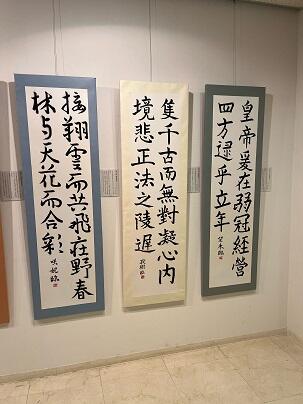 皇帝爰在弱冠經營
四方逮乎立年
隻千古而無對凝心内
境悲正法之陵遅
接翔雲而共飛在野春
林与天花而合彩